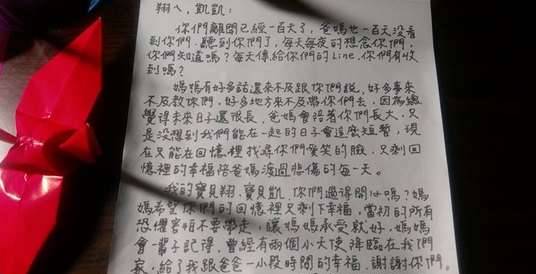 翔ㄟ、凱凱：
你們離開已經一百天了，爸媽也一百天沒看
到你們、聽到你們了，每天每夜的想念你們，
你們知道嗎？每天傳給你們的Line，你們有收
到嗎？
媽媽有好多話還來不及跟你們說，好多事來
不及教你們，好多地方來不及帶你們去，因為總
覺得未來日子還很長，爸媽會陪著你們長大，只
是沒想到我們能在一起的日子會這麼短暫，現
在只能在回憶裡找尋你們愛笑的臉，只剩回
憶裡的幸福陪爸媽渡過悲傷的每一天。
我的寶貝翔、寶貝凱，你們過得開心嗎？媽
媽希望你們的回憶裡只剩下幸福，當初的所有
恐懼害怕不要帶走，讓媽媽承受就好，媽媽
會一輩子記得，曾經有兩個小天使降臨在我們
家，給了我跟爸爸一小段時間的幸福，謝謝你們。